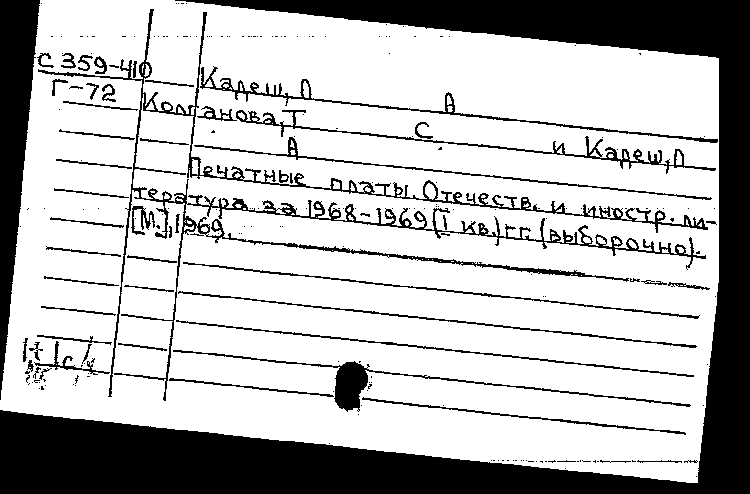 С 359-410
Г-72
Кадеш, Л А
Колганова, Т С. и Кадеш, Л
А
Печатные платы. Отечеств. и иностр. ли-
тература за 1968-1969 (I кв.) гг. (выборочно).
[М.], 1969.